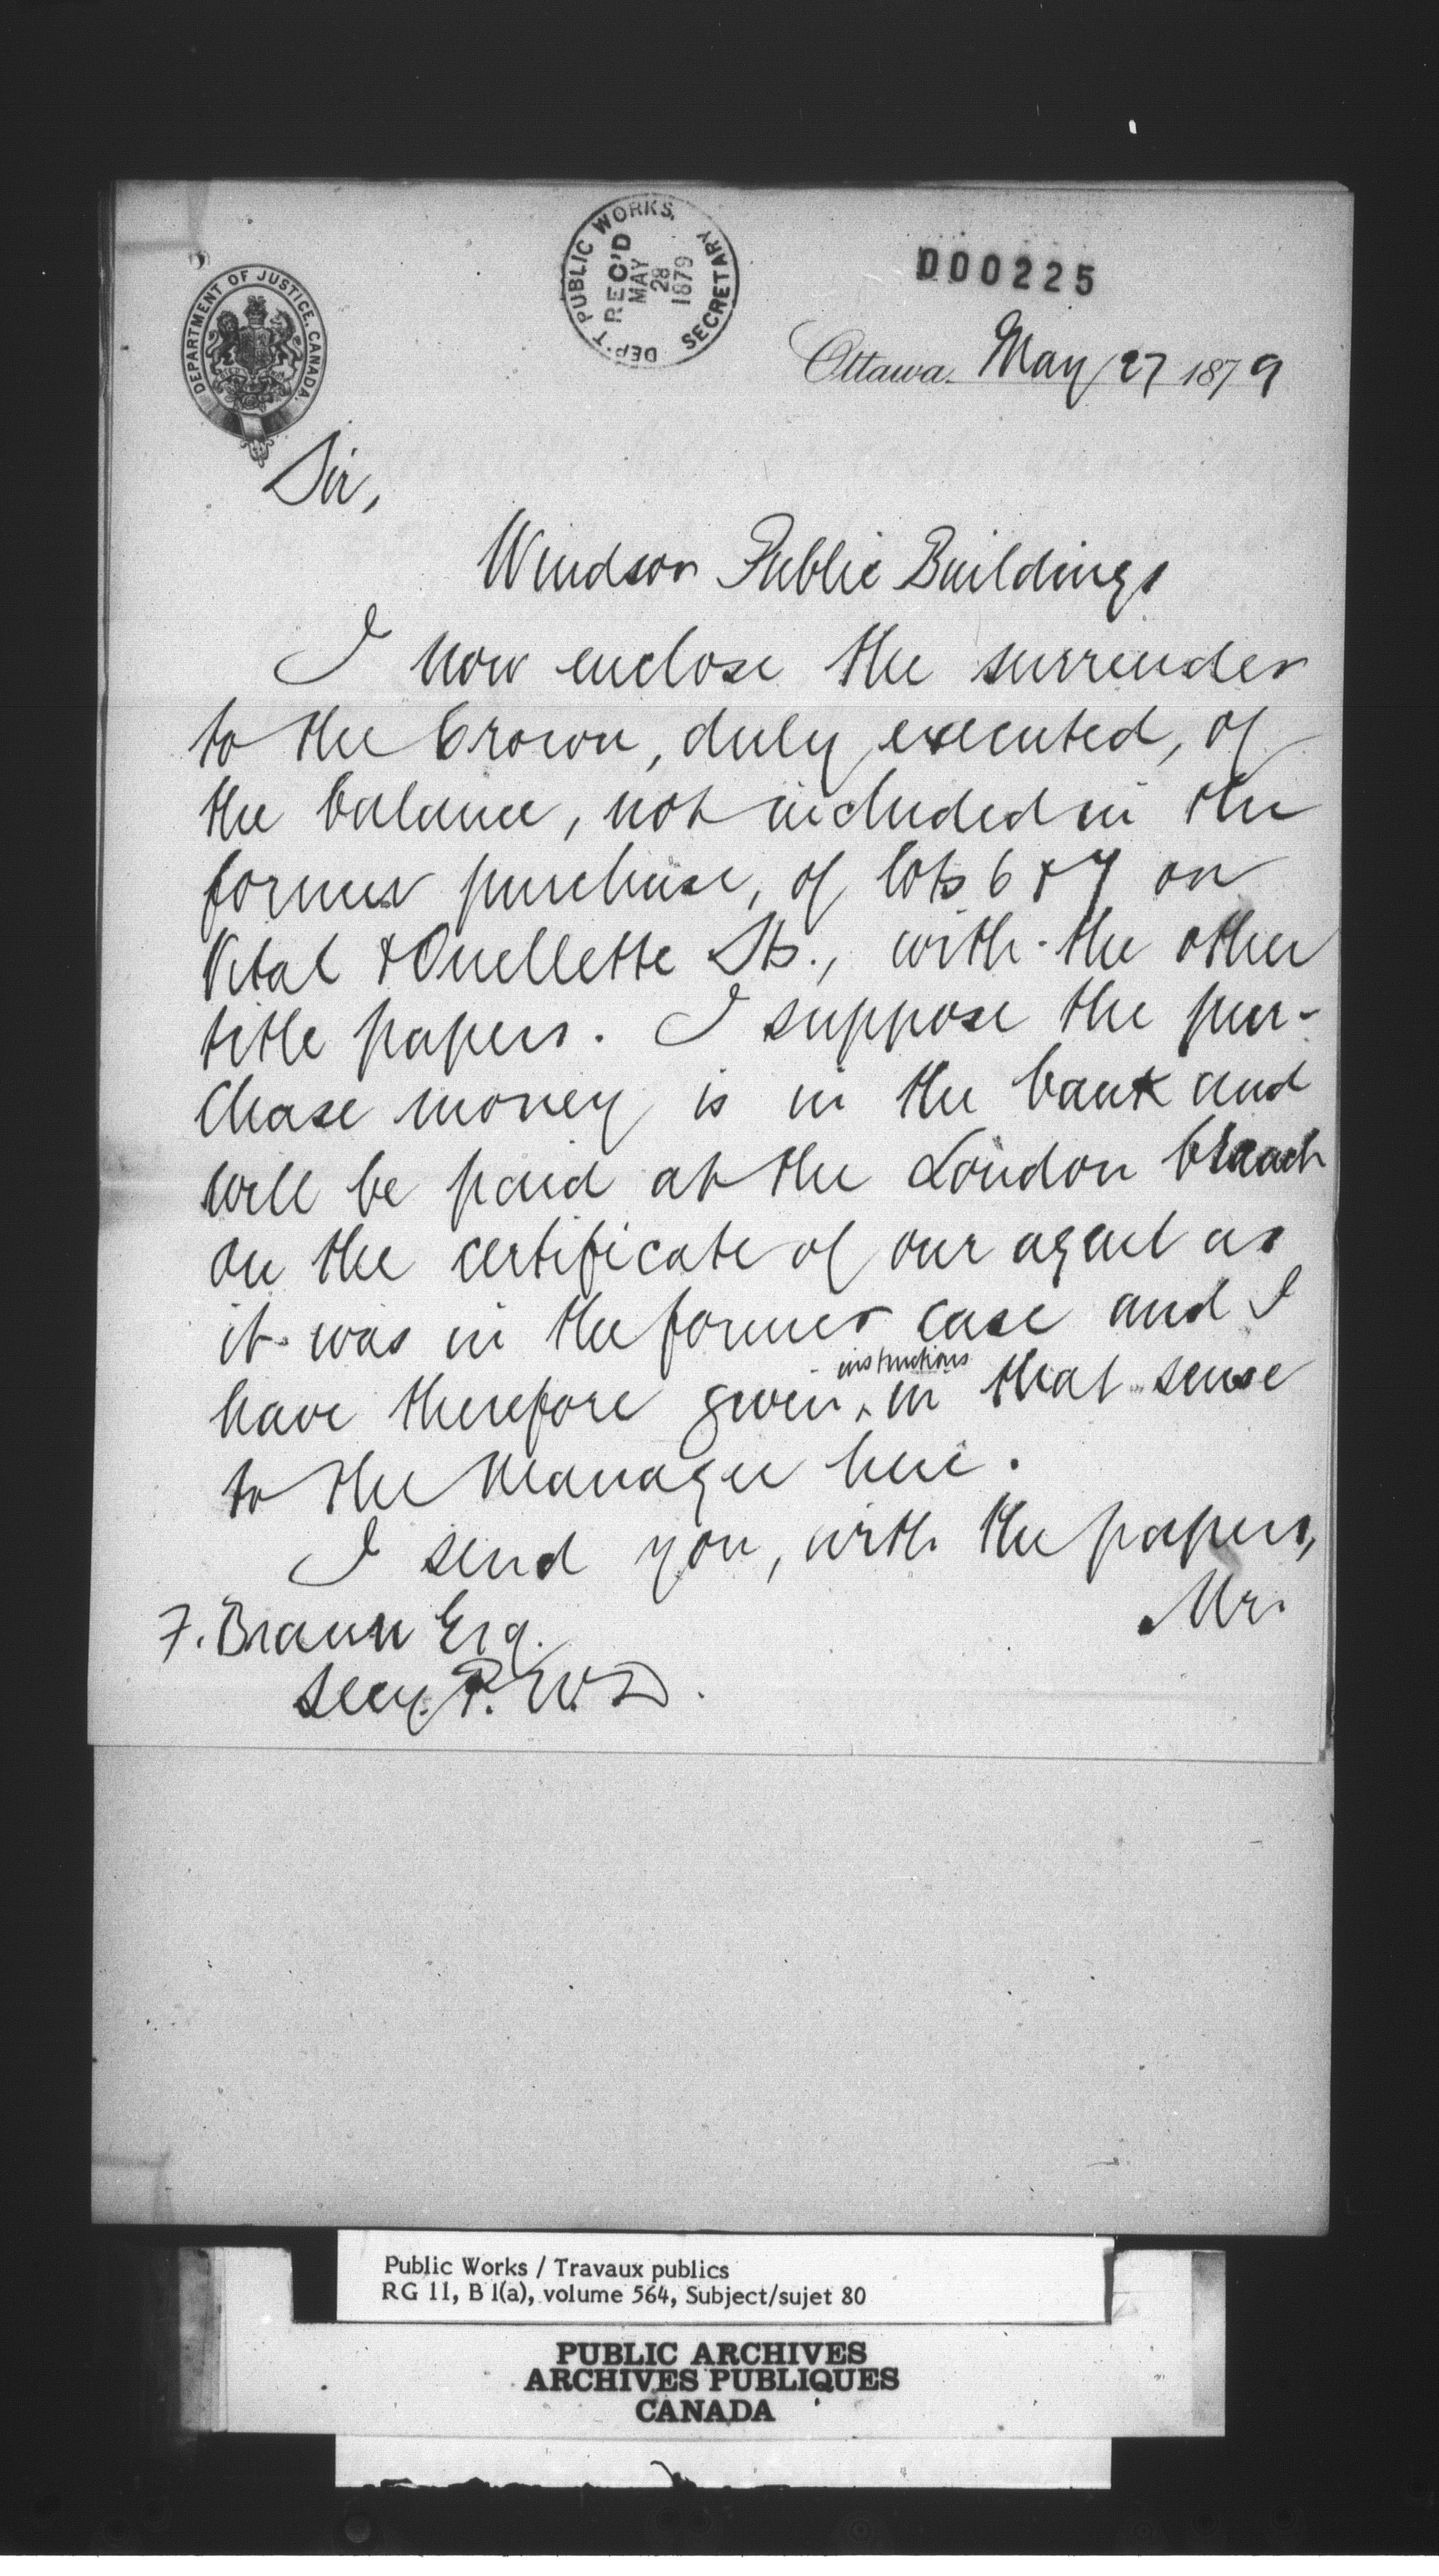 DEPARTMENT OF JUSTICE, CANADA.
DEP'T PUBLIC WORKS, SECRETARY
REC'D
MAY
28
1879
D00225
Ottawa, May 27 1879
Sir,
Windsor Public Buildings
I now enclose the surrender
to the Crown, duly executed, of
the balance, not included in the
former purchase, of lots 6 & 7 on
Vital & Ouellette Sts., with the other
title papers. I suppose the pur-
chase money is in the bank and
will be paid at the London branch
on the certificate of our agent as
it was in the former case and I
have therefore given ‸ instructions in that sense
to the Manager here.
I send you, with the papers,
Mr.
F. Braun Esq.
Secy. P. W. D.
Public Works / Travaux publics
RG 11, B 1(a), volume 564, Subject/sujet 80
PUBLIC ARCHIVES
ARCHIVES PUBLIQUES
CANADA